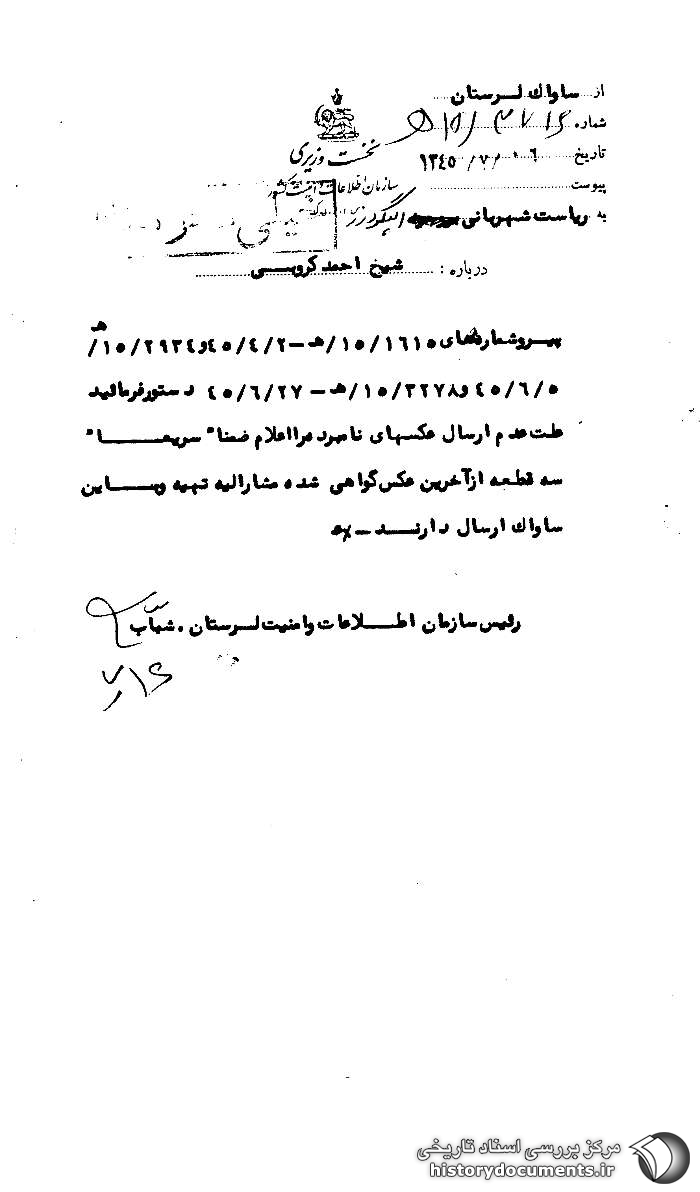 از ساواک لرستان
شماره
تاریخ ۱۳۴۵/۷/۰۶
پیوست
به ریاست شهربانی الیگودرز
نخست وزیری
سازمان اطلاعات و امنیت کشور
درباره : شیخ احمد کروبی
پیرو شماره‌های ۱۵/۱۶۱۵/هـ - ۴۵/۴/۲ و ۱۵/۲۹۳۴/هـ
۴۵/۶/۵ و ۱۵/۳۲۷۸/هـ - ۴۵/۶/۲۷ دستور فرمائید
علت عدم ارسال عکسهای نامبرده را اعلام ضمنا" سریعا"
سه قطعه از آخرین عکس گواهی شده مشارالیه تهیه و باین
ساواک ارسال دارند -
رئیس سازمان اطلاعات و امنیت لرستان . شهاب
۷/۶
مرکز بررسی اسناد تاریخی
historydocuments.ir